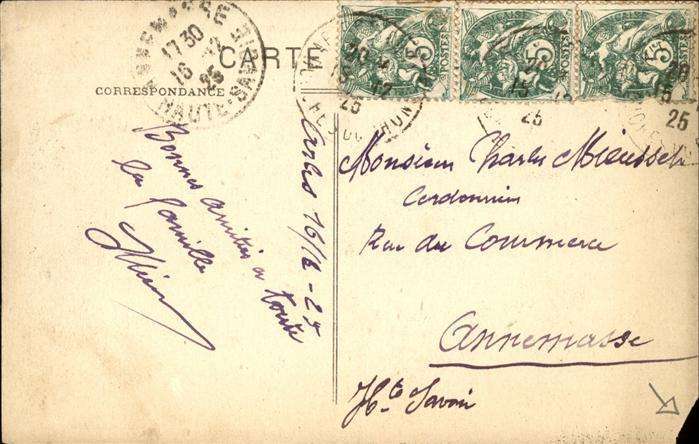 CARTE
CORRESPONDANCE
ANNEMASSE
17 30
16 -12
25
HAUTE-SAVOIE
5
POSTES
5
POSTES
5
POSTES
15 12
25
RHONE
25
25
Arles 16/12-25
Bonnes amitiés a toute
la famille
Monsieur Charles
Cordonnier
Rue du Commerce
Annemasse
Hte Savoie